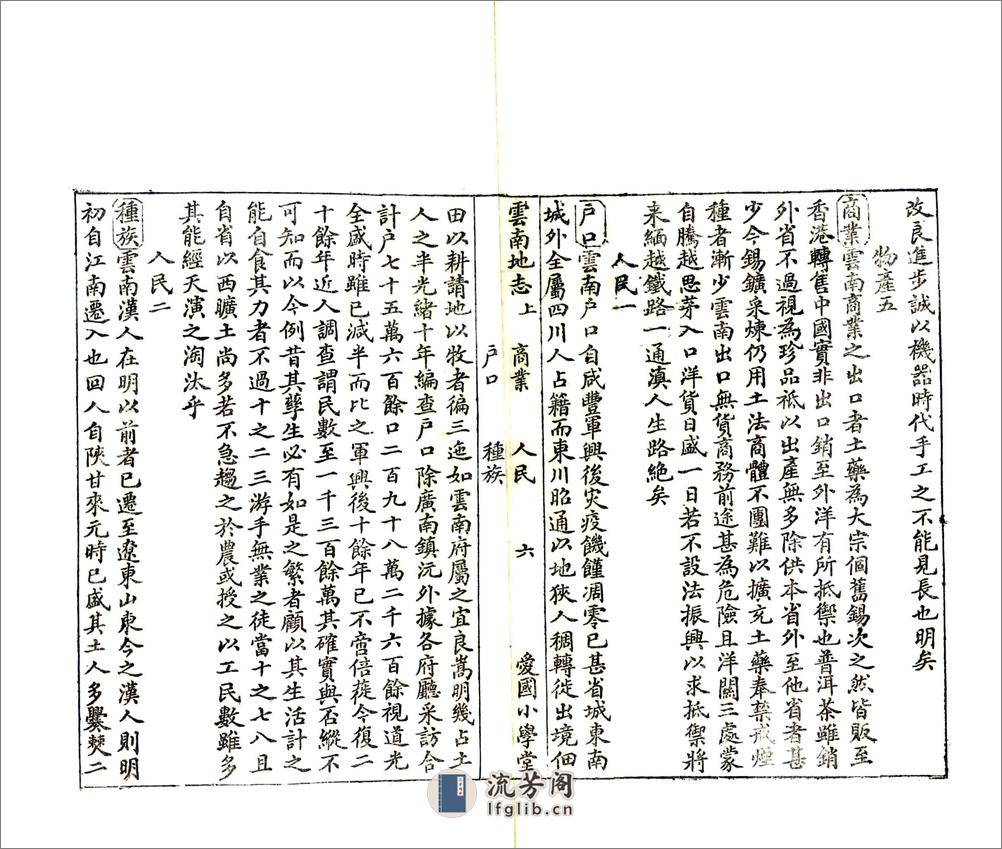 改良進步誠以機器時代手工之不能見長也明矣
物產五
商業雲南商業之出口者土藥為大宗個舊錫次之然皆販至
香港轉售中國實非出口銷至外洋有所抵禦也普洱茶雖銷
外省不過視為珍品祗以出產無多除供本省外至他省者甚
少今錫鑛采煉仍用土法商體不團難以擴充土藥奉禁戒煙
種者漸少雲南出口無貨商務前途甚為危險且洋關三處蒙
自騰越思茅入口洋貨日盛一日若不設法振興以求抵禦將
来緬越鐵路一通滇人生路絶矣
人民一
戶口雲南户口自咸豐軍興後灾疫饑饉凋零已甚省城東南
城外全屬四川人占籍而東川昭通以地狹人稠轉徙出境佃
雲南地志上 商業 人民 六 愛國小學堂
户口 種族
田以耕請地以牧者徧三迤如雲南府屬之宜良嵩明幾占土
人之半光緒十年編查户口除廣南鎮沅外據各府廳采訪合
計户七十五萬六百餘口二百九十八萬二千六百餘視道光
全盛時雖已減半而比之軍興後十餘年已不啻倍蓰今復二
十餘年近人調查謂民數至一千三百餘萬其確實與否縱不
可知而以今例昔其孳生必有如是之繁者顧以其生活計之
能自食其力者不過十之二三游手無業之徒當十之七八且
自省以西曠土尚多若不急趨之於農或授之以工民數雖多
其能經天演之淘汰乎
人民二
種族雲南漢人在明以前者已遷至遼東山東今之漢人則明
初自江南遷入也回人自陝甘來元時已盛其土人多爨僰二
流芳阁
lfglib.cn